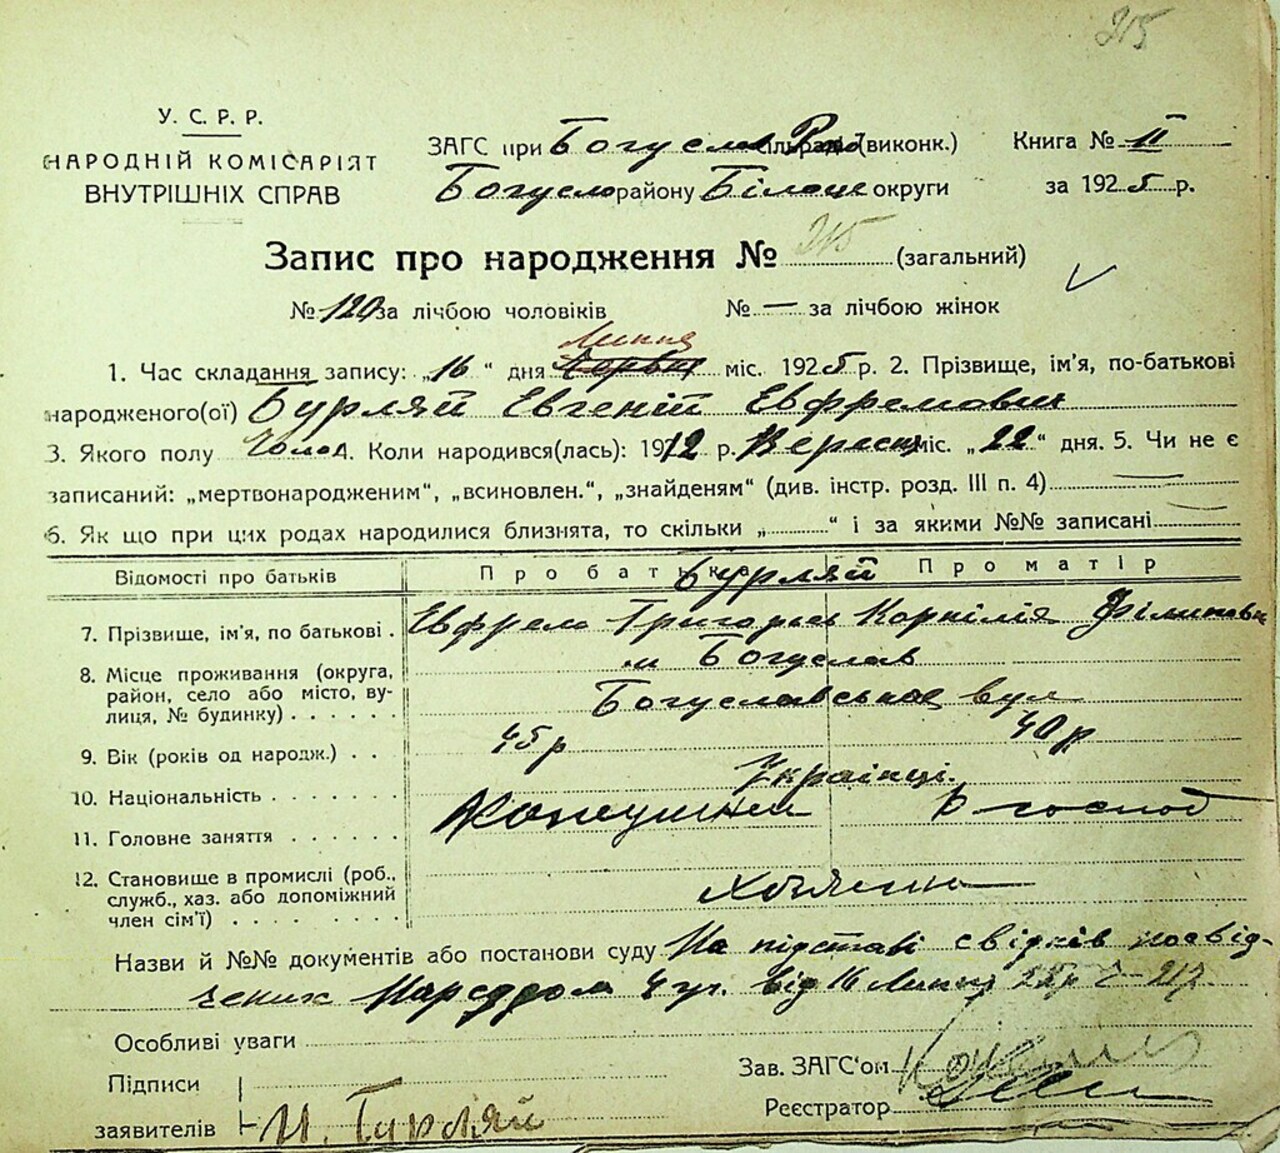 215
У. С. Р. Р.
НАРОДНІЙ КОМІСАРІЯТ
ВНУТРІШНІХ СПРАВ
ЗАГС при Богуслав сільраді (виконк.)
Богусло району Білоце округи
Книга № II
за 1925 р.
Запис про народження № 215 (загальний)
№ 120 за лічбою чоловіків № — за лічбою жінок
Липня
1. Час складання запису: „16“ дня Червня міс. 1925 р. 2. Прізвище, ім'я, по-батькові
народженого(ої) Бурляй Евгеній Евфремович
3. Якого полу Чолов. 4. Коли народився(лась): 1912 р. Вересня міс. „22“ дня. 5. Чи не є
записаний: „мертвонародженим“, „всиновлен.“, „знайденям“ (див. інстр. розд. III п. 4) —
6. Як що при цих родах народилися близнята, то скільки „ “ і за якими №№ записані —
Відомості про батьків Про батька Про матір
Бурляй
7. Прізвище, ім'я, по батькові . Евфрем Григорьев Корнілія Філиповна
8. Місце проживання (округа,
район, село або місто, ву-
лиця, № будинку) . . . . . .
м Богуслав
Богуславська вул
9. Вік (років од народж.) . . 45 р 40 р
10. Національність . . . . . . . Українці.
11. Головне заняття . . . . . . господ
12. Становище в промислі (роб.,
служб., хаз. або допоміжний
член сім'ї) . . . . . . . . .
Хозяин
Назви й №№ документів або постанови суду На підставі свідків посвід-
чених Нарсудом 4 уч. від 16 Липня 25р № 217.
Особливі уваги
Підписи
заявителів
И. Бурляй
Зав. ЗАГС'ом
Реєстратор